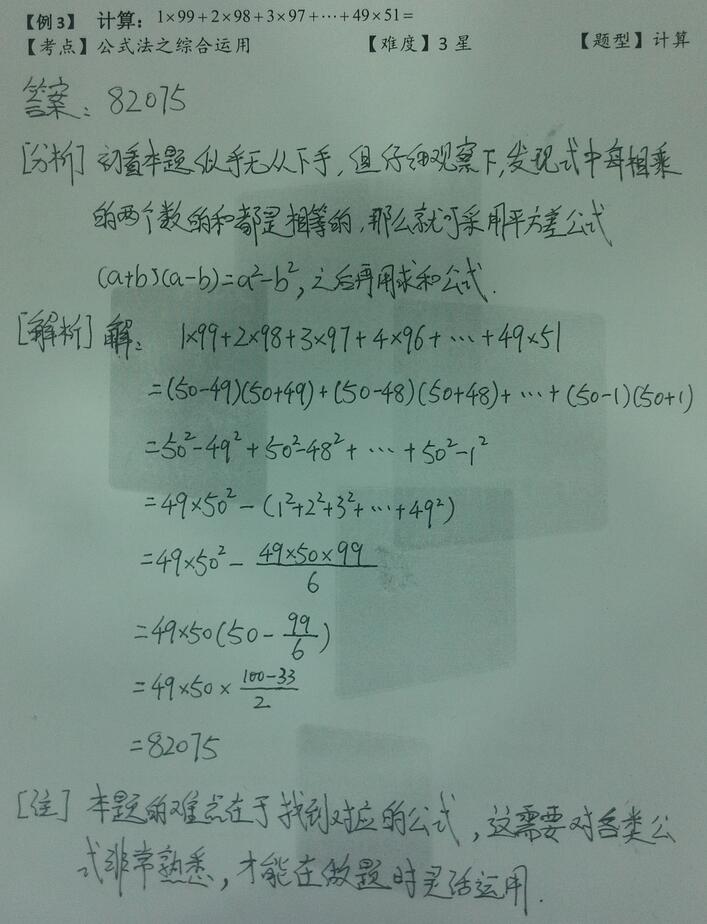 【例3】 计算：1×99+2×98+3×97+⋯+49×51=
【考点】公式法之综合运用 【难度】3星 【题型】计算
答案：82075
[分析] 初看本题似乎无从下手，但仔细观察下，发现式中每相乘
的两个数的和都是相等的，那么就可采用平方差公式
(a+b)(a-b)=a²-b²，之后再用求和公式.
[解析] 解： 1×99+2×98+3×97+4×96+⋯+49×51
=(50-49)(50+49)+(50-48)(50+48)+⋯+(50-1)(50+1)
=50²-49²+50²-48²+⋯+50²-1²
=49×50²-(1²+2²+3²+⋯+49²)
=49×50²-49×50×99/6
=49×50(50-99/6)
=49×50×100-33/2
=82075
[注] 本题的难点在于找到对应的公式，这需要对各类公
式非常熟悉，才能在做题时灵活运用.